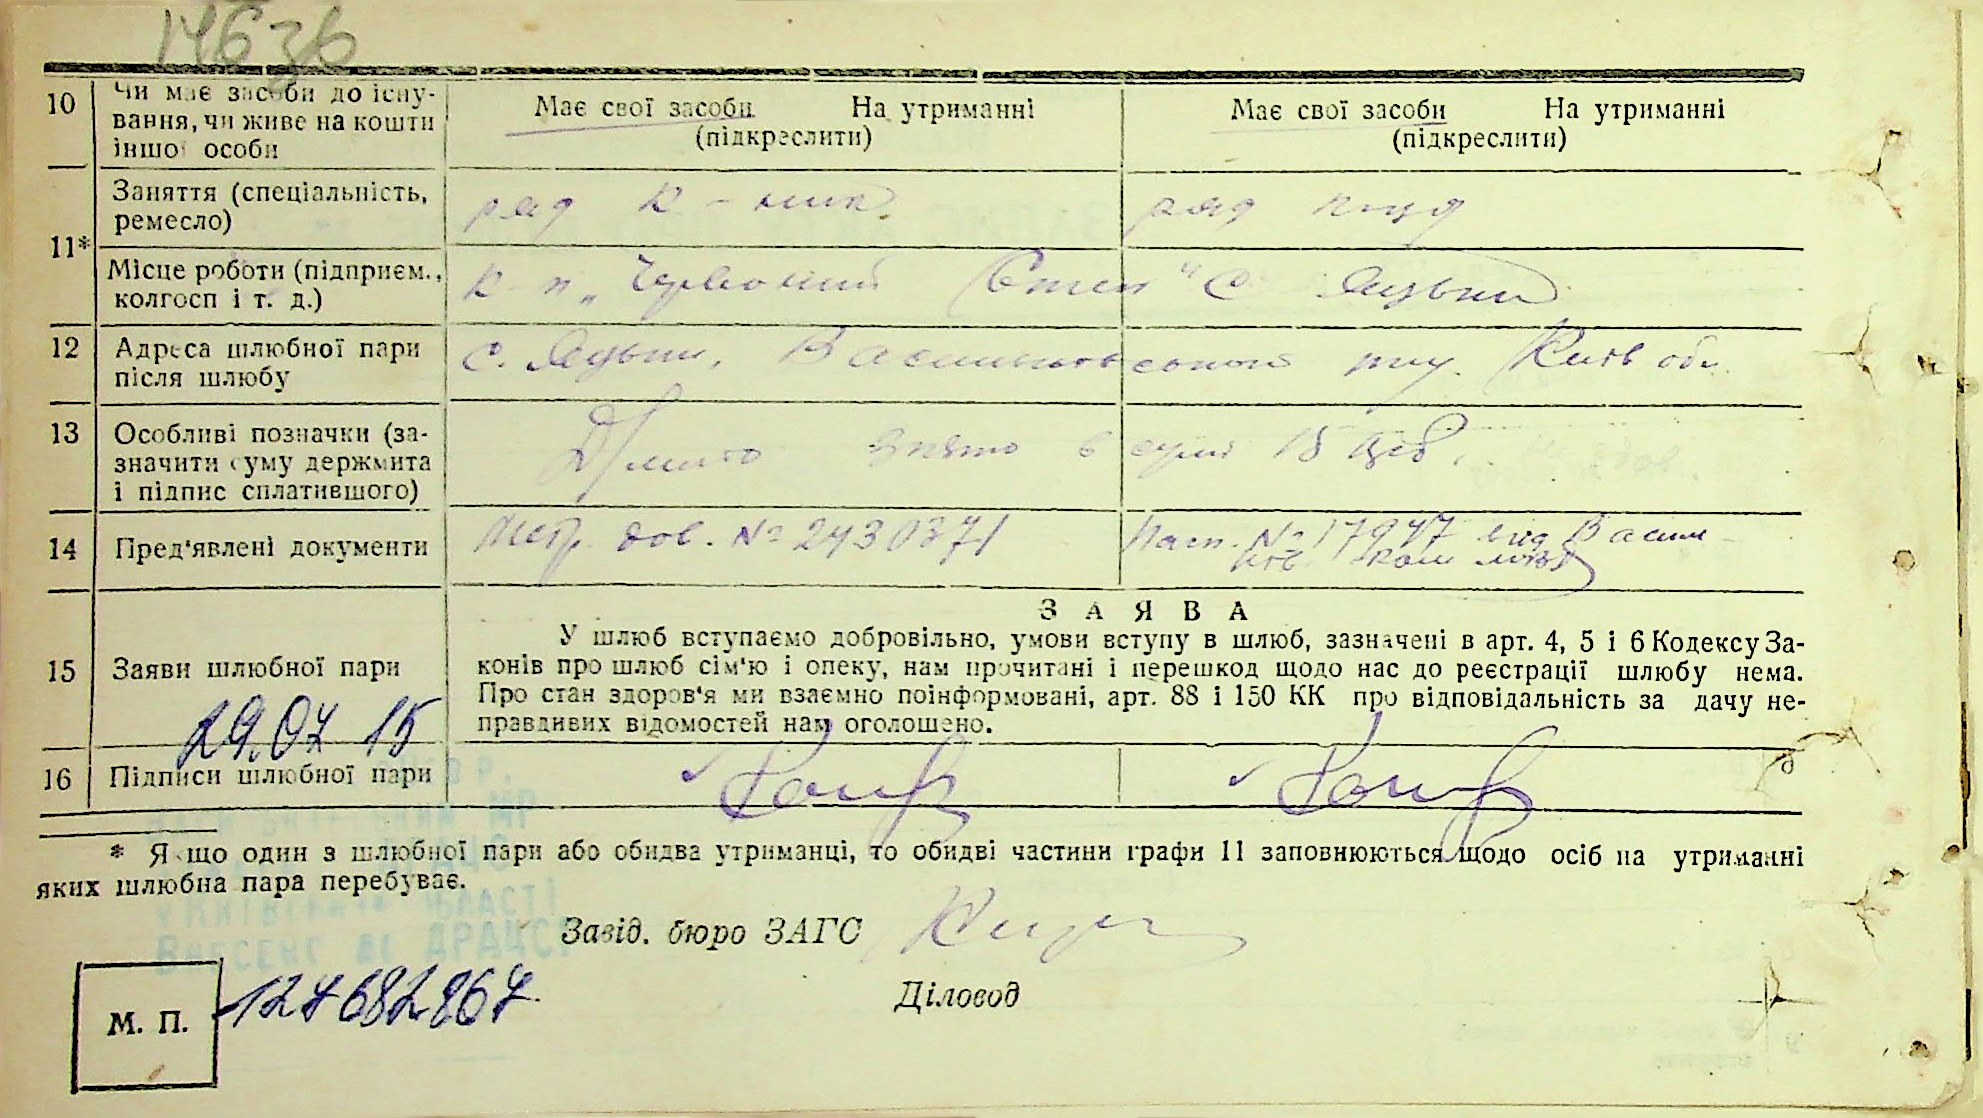 14636
10 Чи має засоби до існу-
вання, чи живе на кошти
іншої особи
Має свої засоби На утриманні
(підкреслити)
Має свої засоби На утриманні
(підкреслити)
11* Заняття (спеціальність,
ремесло)
ряд к-ник ряд
Місце роботи (підприєм.,
колгосп і т. д.)
к-п „Червоний Степ" с. Яцьки
12 Адреса шлюбної пари
після шлюбу
с. Яцьки, Васильківського Київ обл.
13 Особливі позначки (за-
значити суму держмита
і підпис сплатившого)
Д/мито взято в сумі 15
14 Пред'явлені документи
дов. № 2430371
Пасп. № 17947 вид Васил-
15 Заяви шлюбної пари
29.07 15
ЗАЯВА
У шлюб вступаємо добровільно, умови вступу в шлюб, зазначені в арт. 4, 5 і 6 Кодексу За-
конів про шлюб сім'ю і опеку, нам прочитані і перешкод щодо нас до реєстрації шлюбу нема.
Про стан здоров'я ми взаємно поінформовані, арт. 88 і 150 КК про відповідальність за дачу не-
правдивих відомостей нам оголошено.
16 Підписи шлюбної пари
* Якщо один з шлюбної пари або обидва утриманці, то обидві частини графи 11 заповнюються щодо осіб на утриманні
яких шлюбна пара перебуває.
області
Внесено до ДРАЦСГ
Завід. бюро ЗАГС
Діловод
М. П.
127682867